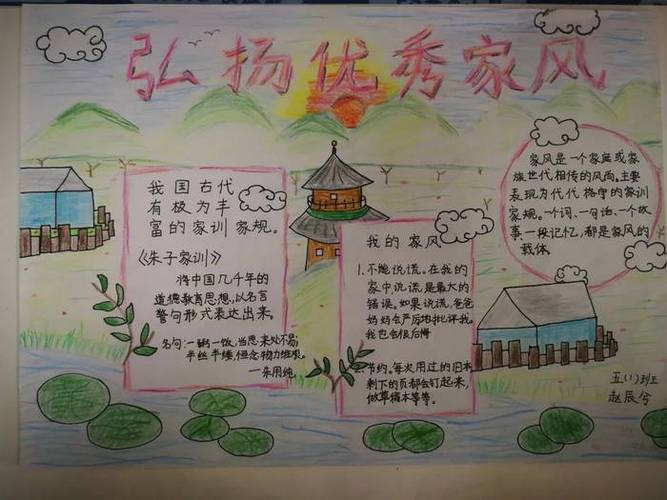 弘扬优秀家风
我国古代
有极为丰
富的家训家规。
《朱子家训》
将中国几千年的
道德教育思想，以名言
警句形式表达出来。
名句：一粥一饭，当思来处不易。
半丝半缕，恒念物力维艰。
——朱用纯
我的家风
1.不能说谎。在我的
家中说谎是最大的
错误。如果说谎，爸爸
妈妈会严厉地批评我。
我也会很后悔
节约。每次用过的旧本
剩下的页都会钉起来，
做草稿本等等。
家风是一个家庭或家
族世代相传的风尚。主要
表现为代代恪守的家训
家规。一个词、一句话、一个故
事、一段记忆，都是家风的
载体。
五（1）班
赵辰兮